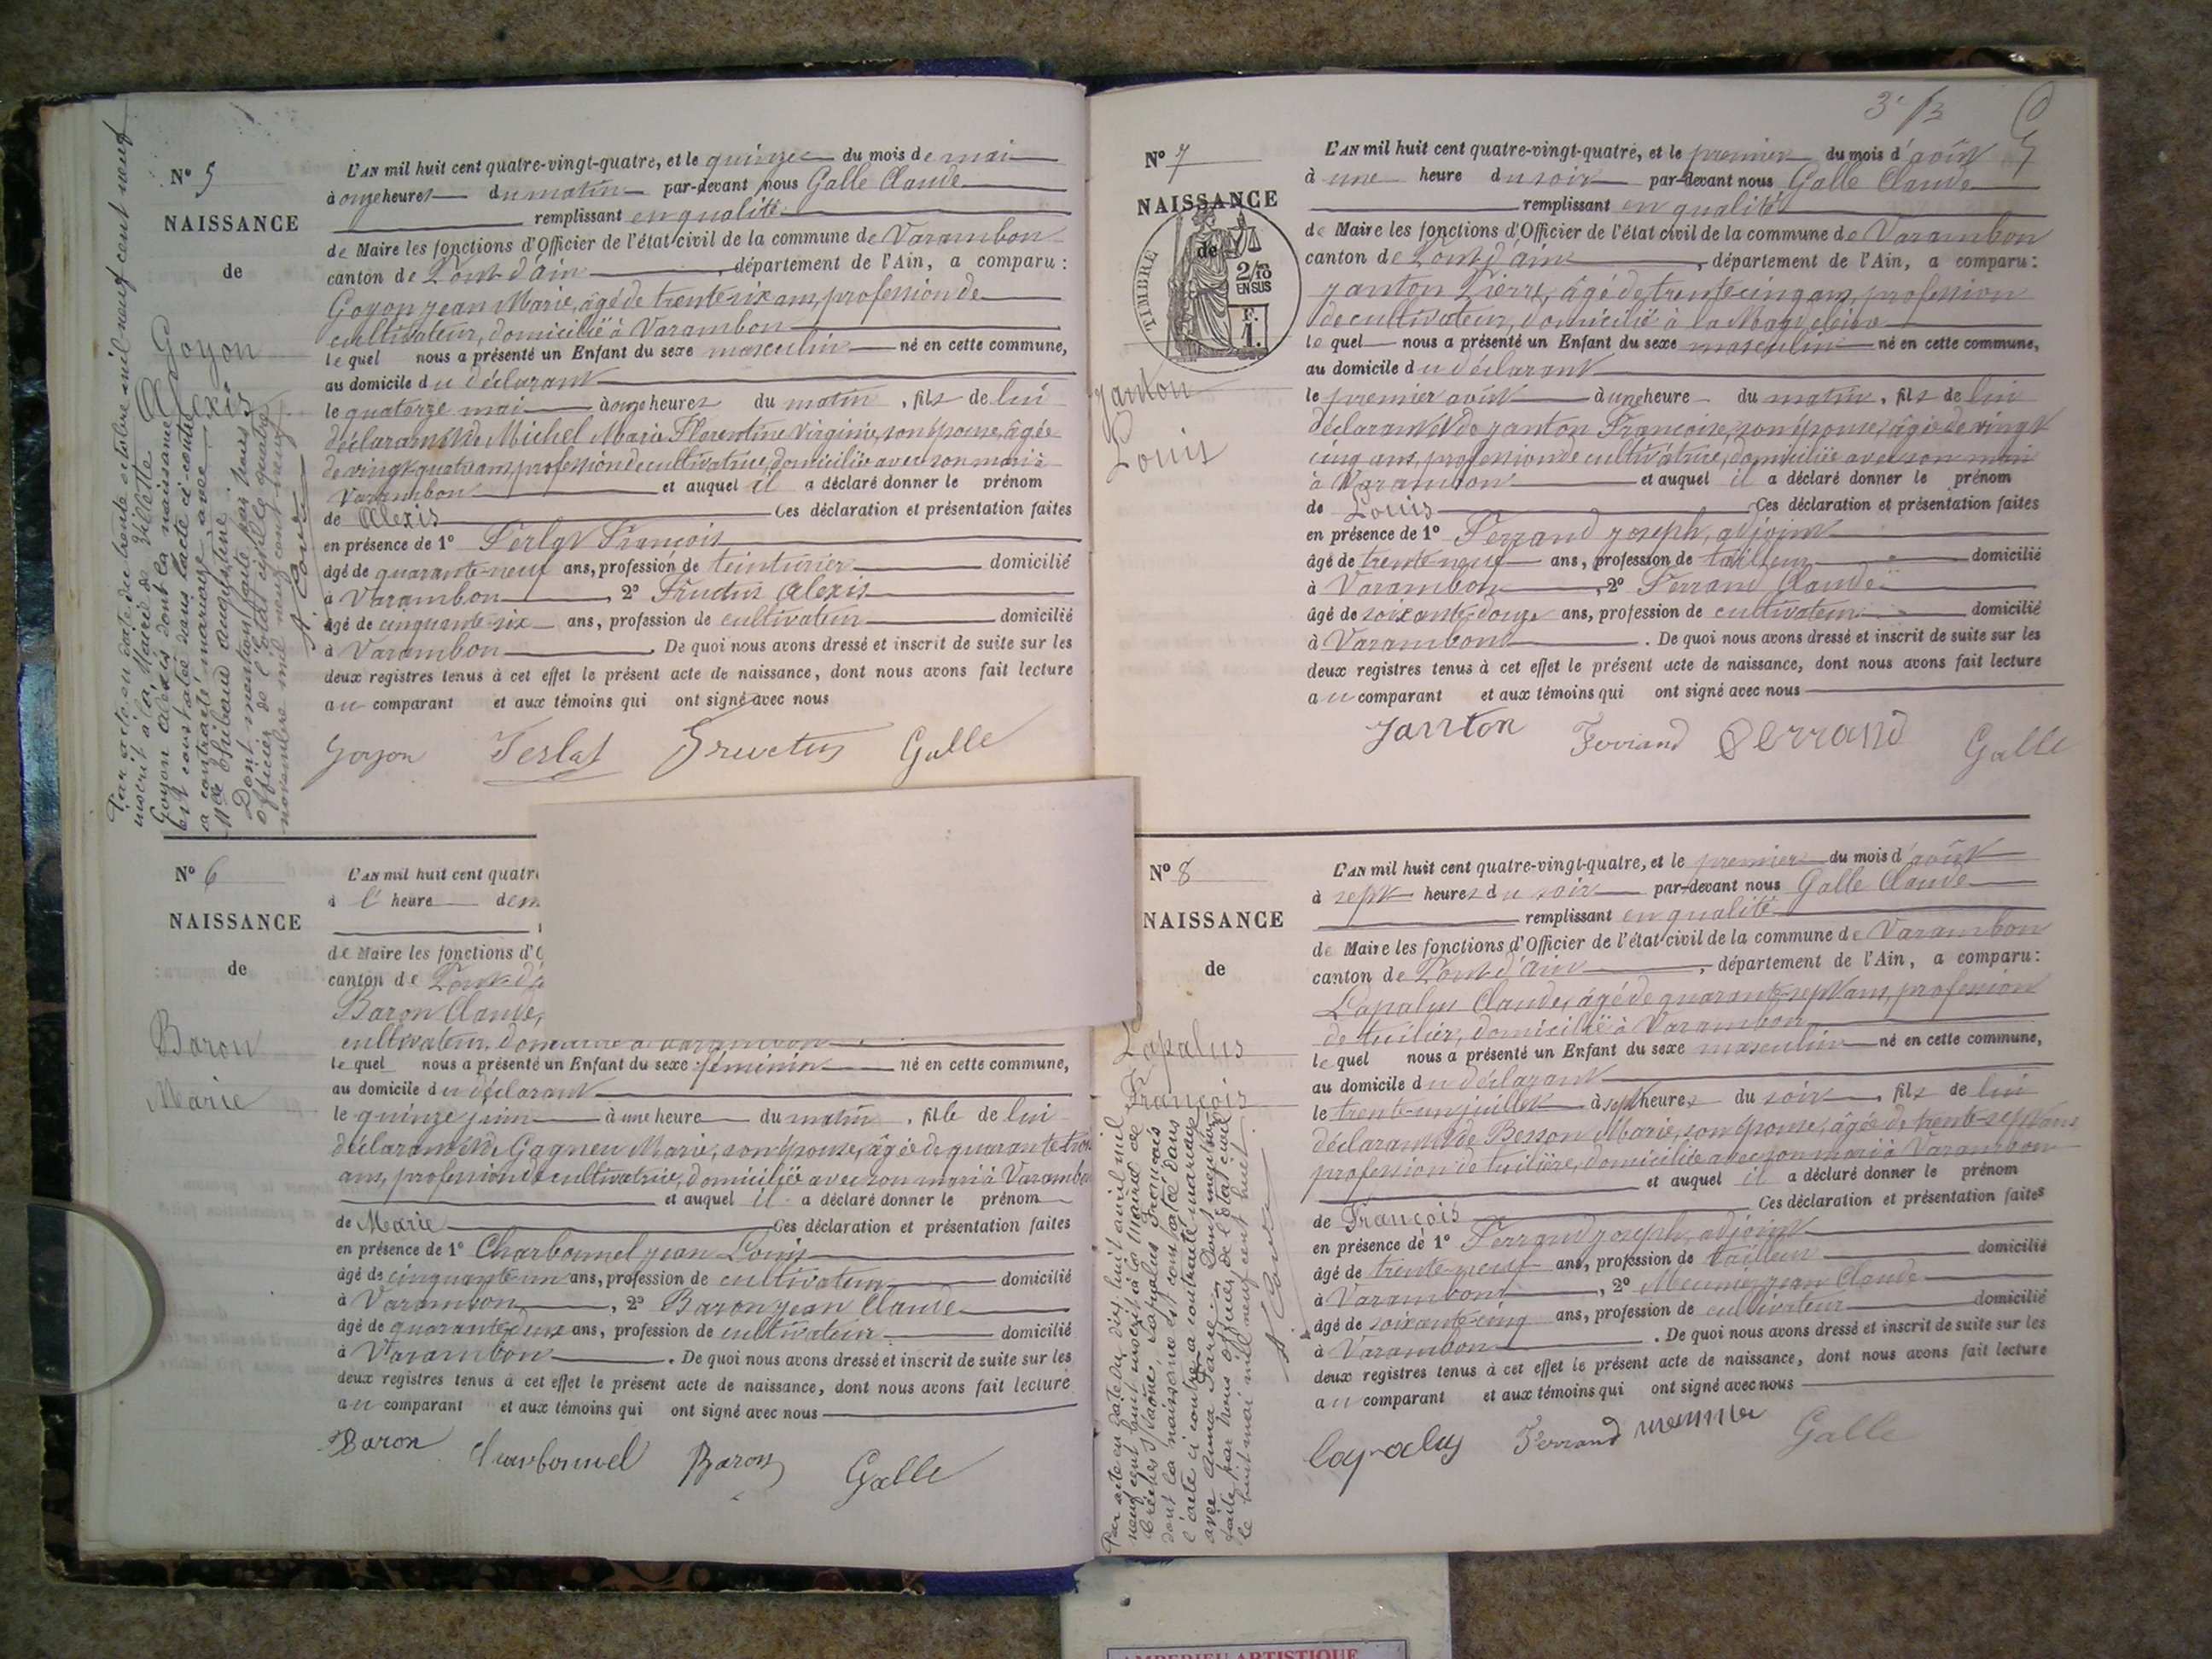 N° 5
NAISSANCE
de
Goyon
Alexis
Par acte en date du trente octobre mil neuf cent neuf
inscrit à la Mairie de Villette
Goyon Alexis dont la naissance
est constatée dans l'acte ci-contre
a contracté mariage avec
Mlle Augustine
Dont mention faite par nous
officier de l'état civil le quatre
novembre mil neuf cent neuf
L'AN mil huit cent quatre-vingt-quatre, et le quinze du mois de mai
à onze heures du matin par-devant nous Galle Claude
remplissant en qualité
de Maire les fonctions d'Officier de l'état civil de la commune de Varambon
canton de Pont-d'Ain, département de l'Ain, a comparu :
Goyon Jean Marie, âgé de trente six ans, profession de
cultivateur, domicilié à Varambon
lequel nous a présenté un Enfant du sexe masculin né en cette commune,
au domicile du déclarant
le quatorze mai à onze heures du matin, fils de lui
déclarant et de Michel Marie Florentine Virginie, son épouse, âgée
de vingt quatre ans, profession de cultivatrice, domiciliée avec son mari à
Varambon et auquel il a déclaré donner le prénom
de Alexis Ces déclaration et présentation faites
en présence de 1° Perlat François
âgé de quarante-neuf ans, profession de teinturier domicilié
à Varambon, 2° Fructus Alexis
âgé de cinquante-six ans, profession de cultivateur domicilié
à Varambon. De quoi nous avons dressé et inscrit de suite sur les
deux registres tenus à cet effet le présent acte de naissance, dont nous avons fait lecture
au comparant et aux témoins qui ont signé avec nous
Goyon Perlat Fructus Galle
N° 6
NAISSANCE
de
Baron
Marie
L'AN mil huit cent quatr
à 1 heure de
de Maire les fonctions d'O
canton de Pont-d'A
Baron Claude,
cultivateur, domicilié à Varambon
lequel nous a présenté un Enfant du sexe féminin né en cette commune,
au domicile du déclarant
le quinze juin à une heure du matin, fille de lui
déclarant et de Gagneu Marie, son épouse, âgée de quarante trois
ans, profession de cultivatrice, domiciliée avec son mari à Varambon
et auquel il a déclaré donner le prénom
de Marie Ces déclaration et présentation faites
en présence de 1° Charbonnel Jean Louis
âgé de cinquante un ans, profession de cultivateur domicilié
à Varambon, 2° Baron Jean Claude
âgé de quarante deux ans, profession de cultivateur domicilié
à Varambon. De quoi nous avons dressé et inscrit de suite sur les
deux registres tenus à cet effet le présent acte de naissance, dont nous avons fait lecture
au comparant et aux témoins qui ont signé avec nous
Baron Charbonnel Baron Galle
N° 7
NAISSANCE
de
TIMBRE
2/10 EN SUS
F. 1.
Janton
Louis
L'AN mil huit cent quatre-vingt-quatre, et le premier du mois d'août
à une heure du soir par-devant nous Galle Claude
remplissant en qualité
de Maire les fonctions d'Officier de l'état civil de la commune de Varambon
canton de Pont-d'Ain, département de l'Ain, a comparu :
Janton Pierre, âgé de trente-cinq ans, profession
de cultivateur, domicilié à la
lequel nous a présenté un Enfant du sexe masculin né en cette commune,
au domicile du déclarant
le premier août à une heure du matin, fils de lui
déclarant et de Janton Françoise, son épouse, âgée de vingt
cinq ans, profession de cultivatrice, domiciliée avec son mari
à Varambon et auquel il a déclaré donner le prénom
de Louis Ces déclaration et présentation faites
en présence de 1° Ferrand Joseph, adjoint
âgé de trente-neuf ans, profession de tailleur domicilié
à Varambon, 2° Ferrand Claude
âgé de soixante-douze ans, profession de cultivateur domicilié
à Varambon. De quoi nous avons dressé et inscrit de suite sur les
deux registres tenus à cet effet le présent acte de naissance, dont nous avons fait lecture
au comparant et aux témoins qui ont signé avec nous
Janton Ferrand Ferrand Galle
N° 8
NAISSANCE
de
Lapalus
François
Par acte en date du dix huit avril mil
neuf cent huit inscrit à la Mairie de
Crèches s/ Saône, Lapalus François
dont la naissance est constatée dans
l'acte ci contre a contracté mariage
avec Anna Dont mention
faite par nous officier de l'état civil
le huit mai mil neuf cent huit
L'AN mil huit cent quatre-vingt-quatre, et le premier du mois d'août
à sept heures du soir par-devant nous Galle Claude
remplissant en qualité
de Maire les fonctions d'Officier de l'état civil de la commune de Varambon
canton de Pont-d'Ain, département de l'Ain, a comparu :
Lapalus Claude, âgé de quarante-sept ans, profession
de tuilier, domicilié à Varambon
lequel nous a présenté un Enfant du sexe masculin né en cette commune,
au domicile du déclarant
le trente-un juillet à sept heures du soir, fils de lui
déclarant et de Besson Marie, son épouse, âgée de trente-sept ans
profession de tuilière, domiciliée avec son mari à Varambon
et auquel il a déclaré donner le prénom
de François Ces déclaration et présentation faites
en présence de 1° Ferrand Joseph, adjoint
âgé de trente-neuf ans, profession de tailleur domicilié
à Varambon, 2° Meunier Jean Claude
âgé de soixante-cinq ans, profession de cultivateur domicilié
à Varambon. De quoi nous avons dressé et inscrit de suite sur les
deux registres tenus à cet effet le présent acte de naissance, dont nous avons fait lecture
au comparant et aux témoins qui ont signé avec nous
Lapalus Ferrand meunier Galle
AMBERIEU ARTISTIQUE